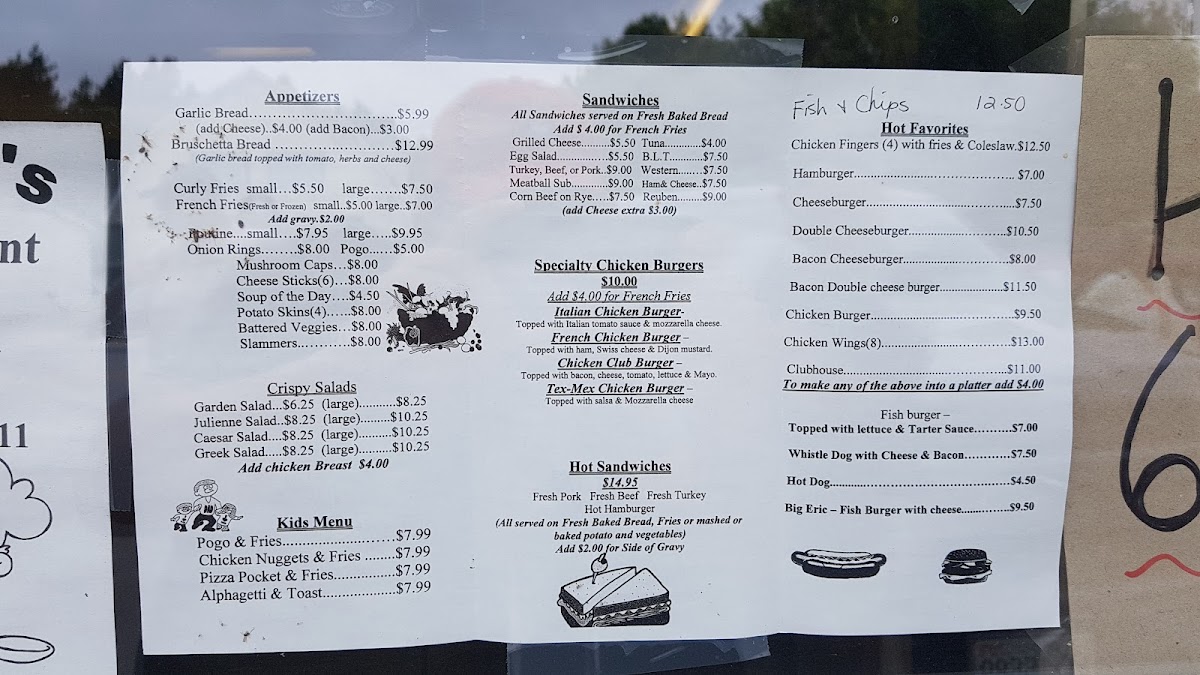 's
nt
11
Appetizers
Garlic Bread..............................$5.99
(add Cheese)..$4.00 (add Bacon)...$3.00
Bruschetta Bread ........................$12.99
(Garlic bread topped with tomato, herbs and cheese)
Curly Fries small...$5.50 large.......$7.50
French Fries(Fresh or Frozen) small..$5.00 large..$7.00
Add gravy.$2.00
Poutine....small....$7.95 large.....$9.95
Onion Rings........$8.00 Pogo......$5.00
Mushroom Caps...$8.00
Cheese Sticks(6)...$8.00
Soup of the Day....$4.50
Potato Skins(4)......$8.00
Battered Veggies...$8.00
Slammers............$8.00
Crispy Salads
Garden Salad...$6.25 (large)...........$8.25
Julienne Salad..$8.25 (large).........$10.25
Caesar Salad....$8.25 (large).........$10.25
Greek Salad.....$8.25 (large).........$10.25
Add chicken Breast $4.00
Kids Menu
Pogo & Fries.........................$7.99
Chicken Nuggets & Fries ........$7.99
Pizza Pocket & Fries...............$7.99
Alphagetti & Toast..................$7.99
Sandwiches
All Sandwiches served on Fresh Baked Bread
Add $ 4.00 for French Fries
Grilled Cheese.........$5.50 Tuna.........$4.00
Egg Salad................$5.50 B.L.T.........$7.50
Turkey, Beef, or Pork..$9.00 Western.......$7.50
Meatball Sub............$9.00 Ham& Cheese..$7.50
Corn Beef on Rye.....$7.50 Reuben.........$9.00
(add Cheese extra $3.00)
Specialty Chicken Burgers
$10.00
Add $4.00 for French Fries
Italian Chicken Burger-
Topped with Italian tomato sauce & mozzarella cheese.
French Chicken Burger –
Topped with ham, Swiss cheese & Dijon mustard.
Chicken Club Burger –
Topped with bacon, cheese, tomato, lettuce & Mayo.
Tex-Mex Chicken Burger –
Topped with salsa & Mozzarella cheese
Hot Sandwiches
$14.95
Fresh Pork Fresh Beef Fresh Turkey
Hot Hamburger
(All served on Fresh Baked Bread, Fries or mashed or
baked potato and vegetables)
Add $2.00 for Side of Gravy
Fish & Chips 12.50
Hot Favorites
Chicken Fingers (4) with fries & Coleslaw.$12.50
Hamburger........................................$7.00
Cheeseburger.....................................$7.50
Double Cheeseburger..........................$10.50
Bacon Cheeseburger............................$8.00
Bacon Double cheese burger......................$11.50
Chicken Burger........................................$9.50
Chicken Wings(8).....................................$13.00
Clubhouse..............................................$11.00
To make any of the above into a platter add $4.00
Fish burger –
Topped with lettuce & Tarter Sauce..........$7.00
Whistle Dog with Cheese & Bacon............$7.50
Hot Dog...................................................$4.50
Big Eric – Fish Burger with cheese.............$9.50
6